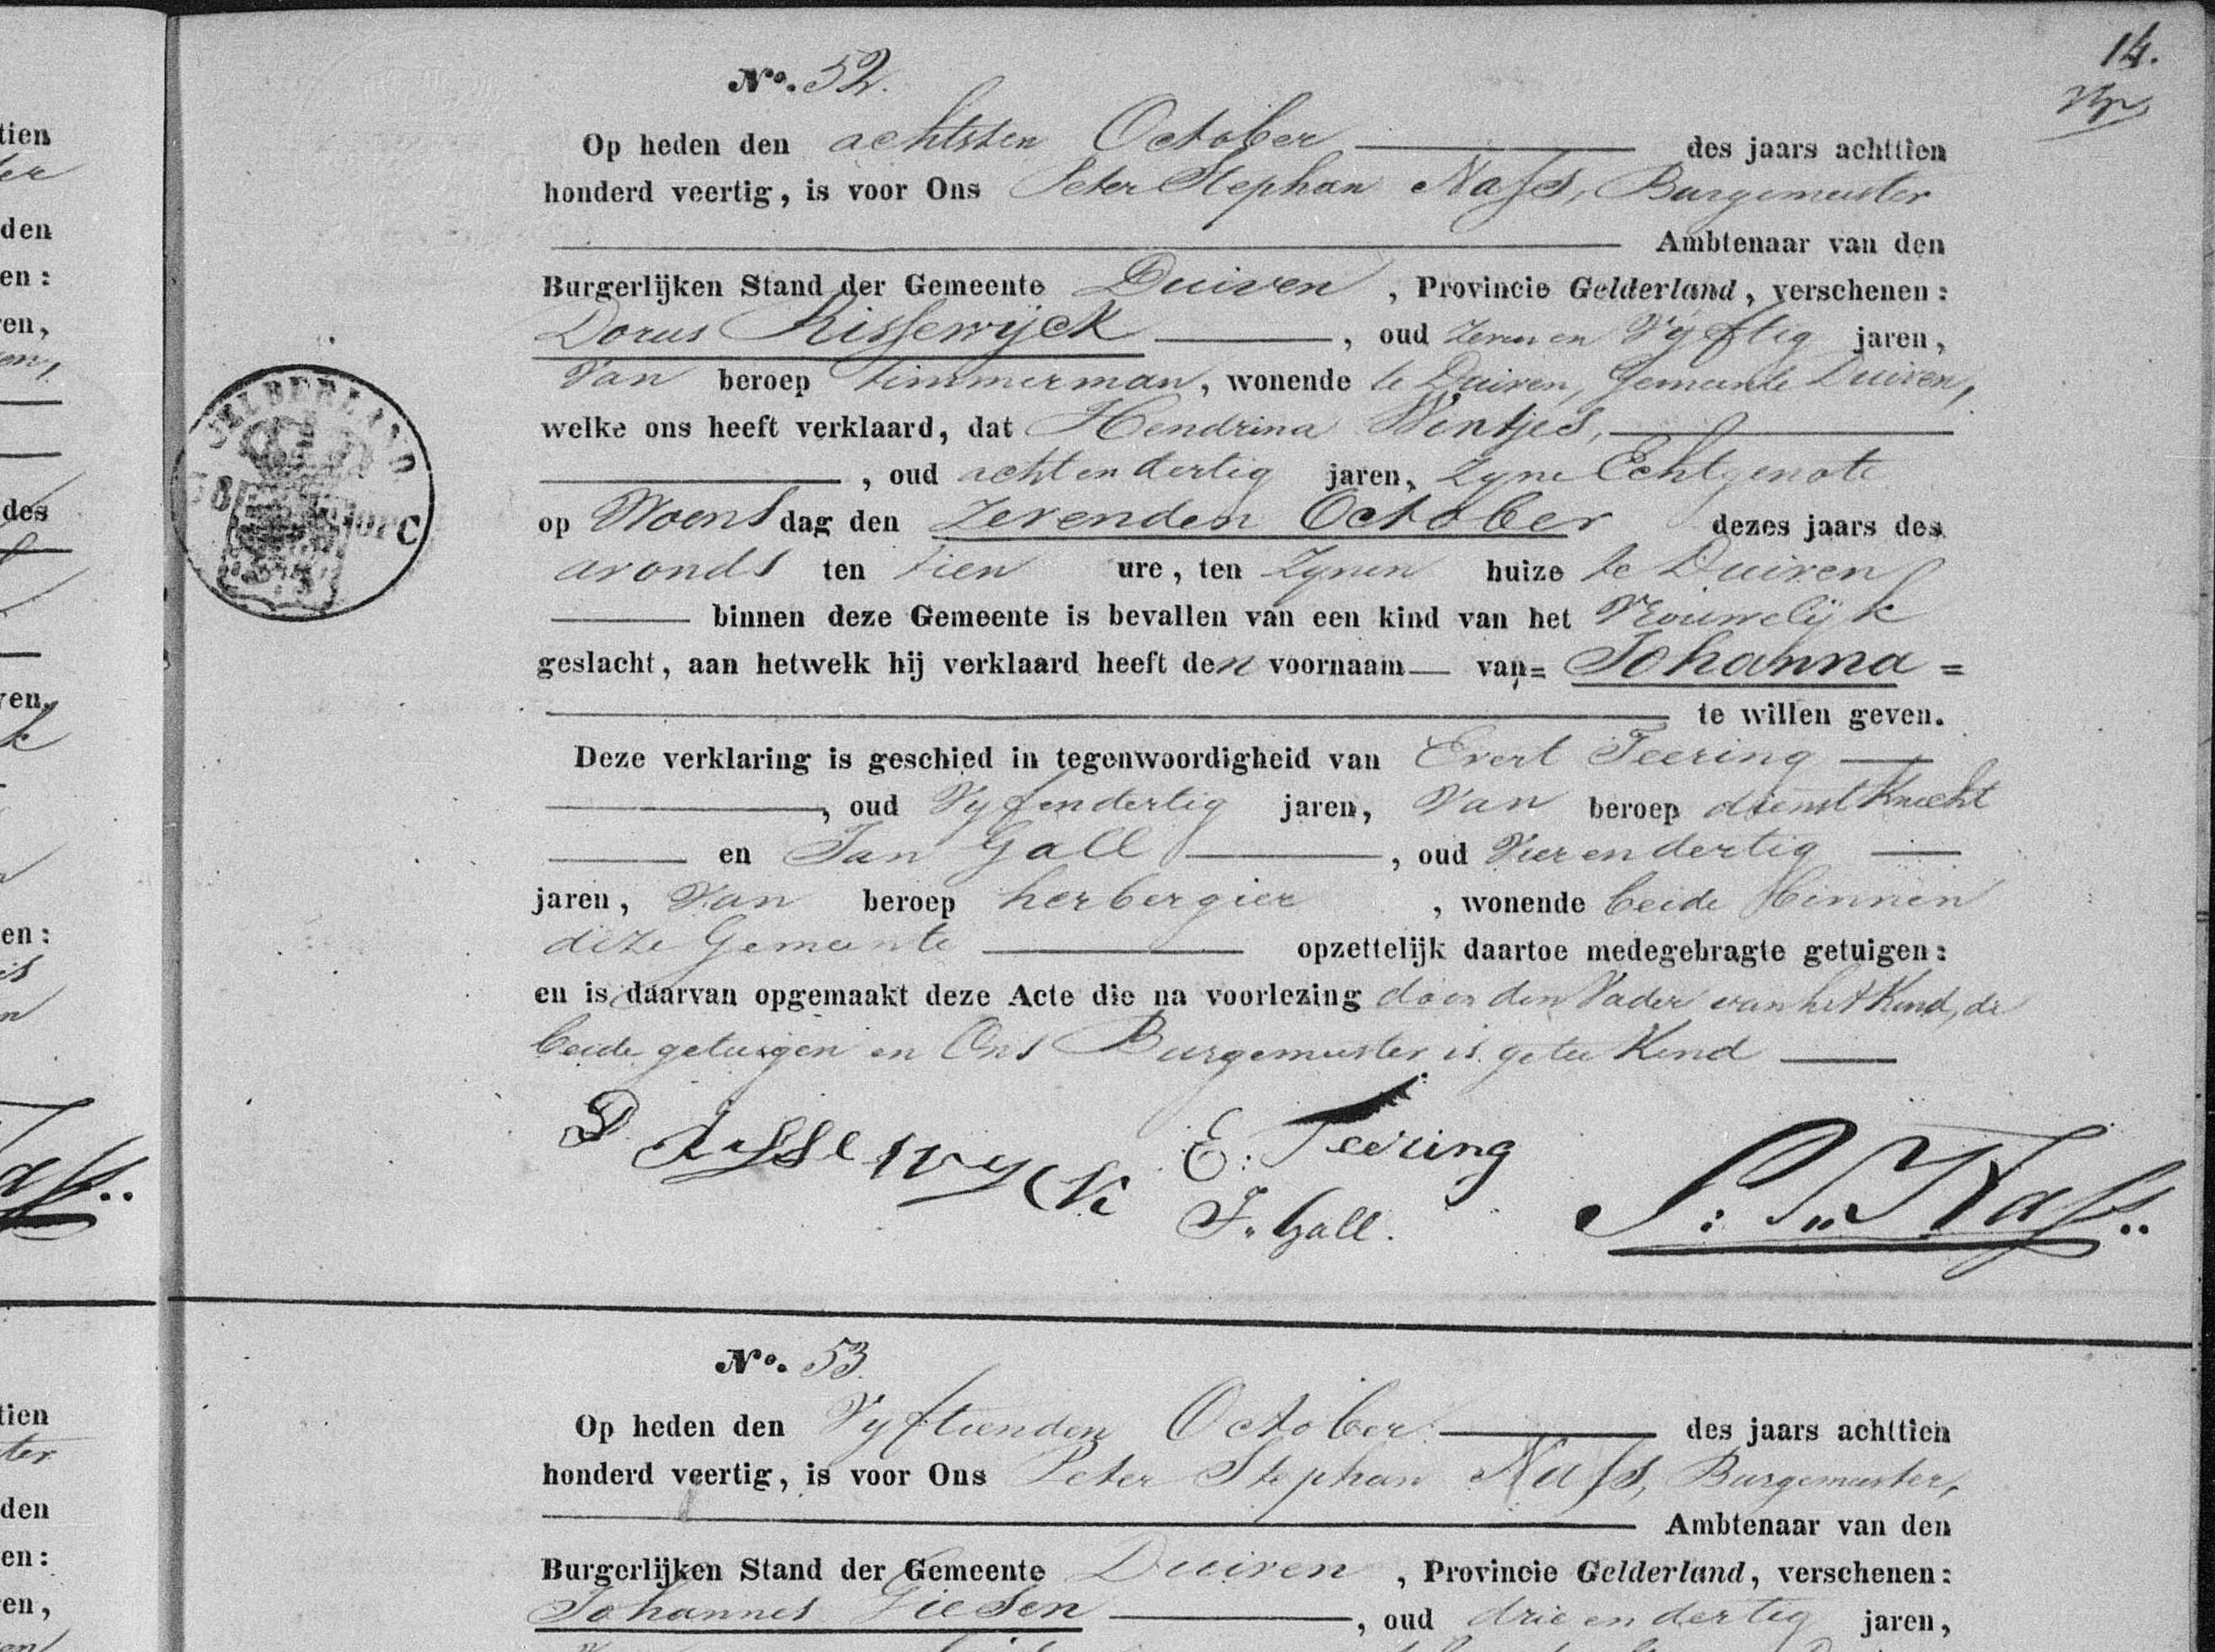 14.
No. 52.
Op heden den achtsten October des jaars achttien
honderd veertig, is voor Ons Peter Stephan Nass, Burgemeester
Ambtenaar van den
Burgerlijken Stand der Gemeente Duiven, Provincie Gelderland, verschenen:
Dorus Rissewijck, oud zeven en Vyftig jaren,
Van beroep timmerman, wonende te Duiven, Gemeente Duiven,
welke ons heeft verklaard, dat Hendrina Wentjes,
, oud acht en dertig jaren, Zyne Echtgenote
op Woensdag den Zevenden October dezes jaars des
avonds ten tien ure, ten Zynen huize te Duiven
binnen deze Gemeente is bevallen van een kind van het Vrouwelijk
geslacht, aan hetwelk hij verklaard heeft den voornaam van = Johanna =
te willen geven.
Deze verklaring is geschied in tegenwoordigheid van Evert Teering
, oud Vyf en dertig jaren, Van beroep dienstknecht
en Jan Gall, oud Vier en dertig
jaren, Van beroep herbergier, wonende beide binnen
deze Gemeente opzettelijk daartoe medegebragte getuigen:
en is daarvan opgemaakt deze Acte die na voorlezing door den Vader van het Kind, de
beide getuigen en Ons Burgemeester is getee Kend
D Rissewyck E. Teering
J. Gall. P: S,, Nass..
GELDERLAND
No. 53.
Op heden den Vyftienden October des jaars achttien
honderd veertig, is voor Ons Peter Stephan Nass, Burgemeester,
Ambtenaar van den
Burgerlijken Stand der Gemeente Duiven, Provincie Gelderland, verschenen:
Johannes Giesen, oud drie en dertig jaren,